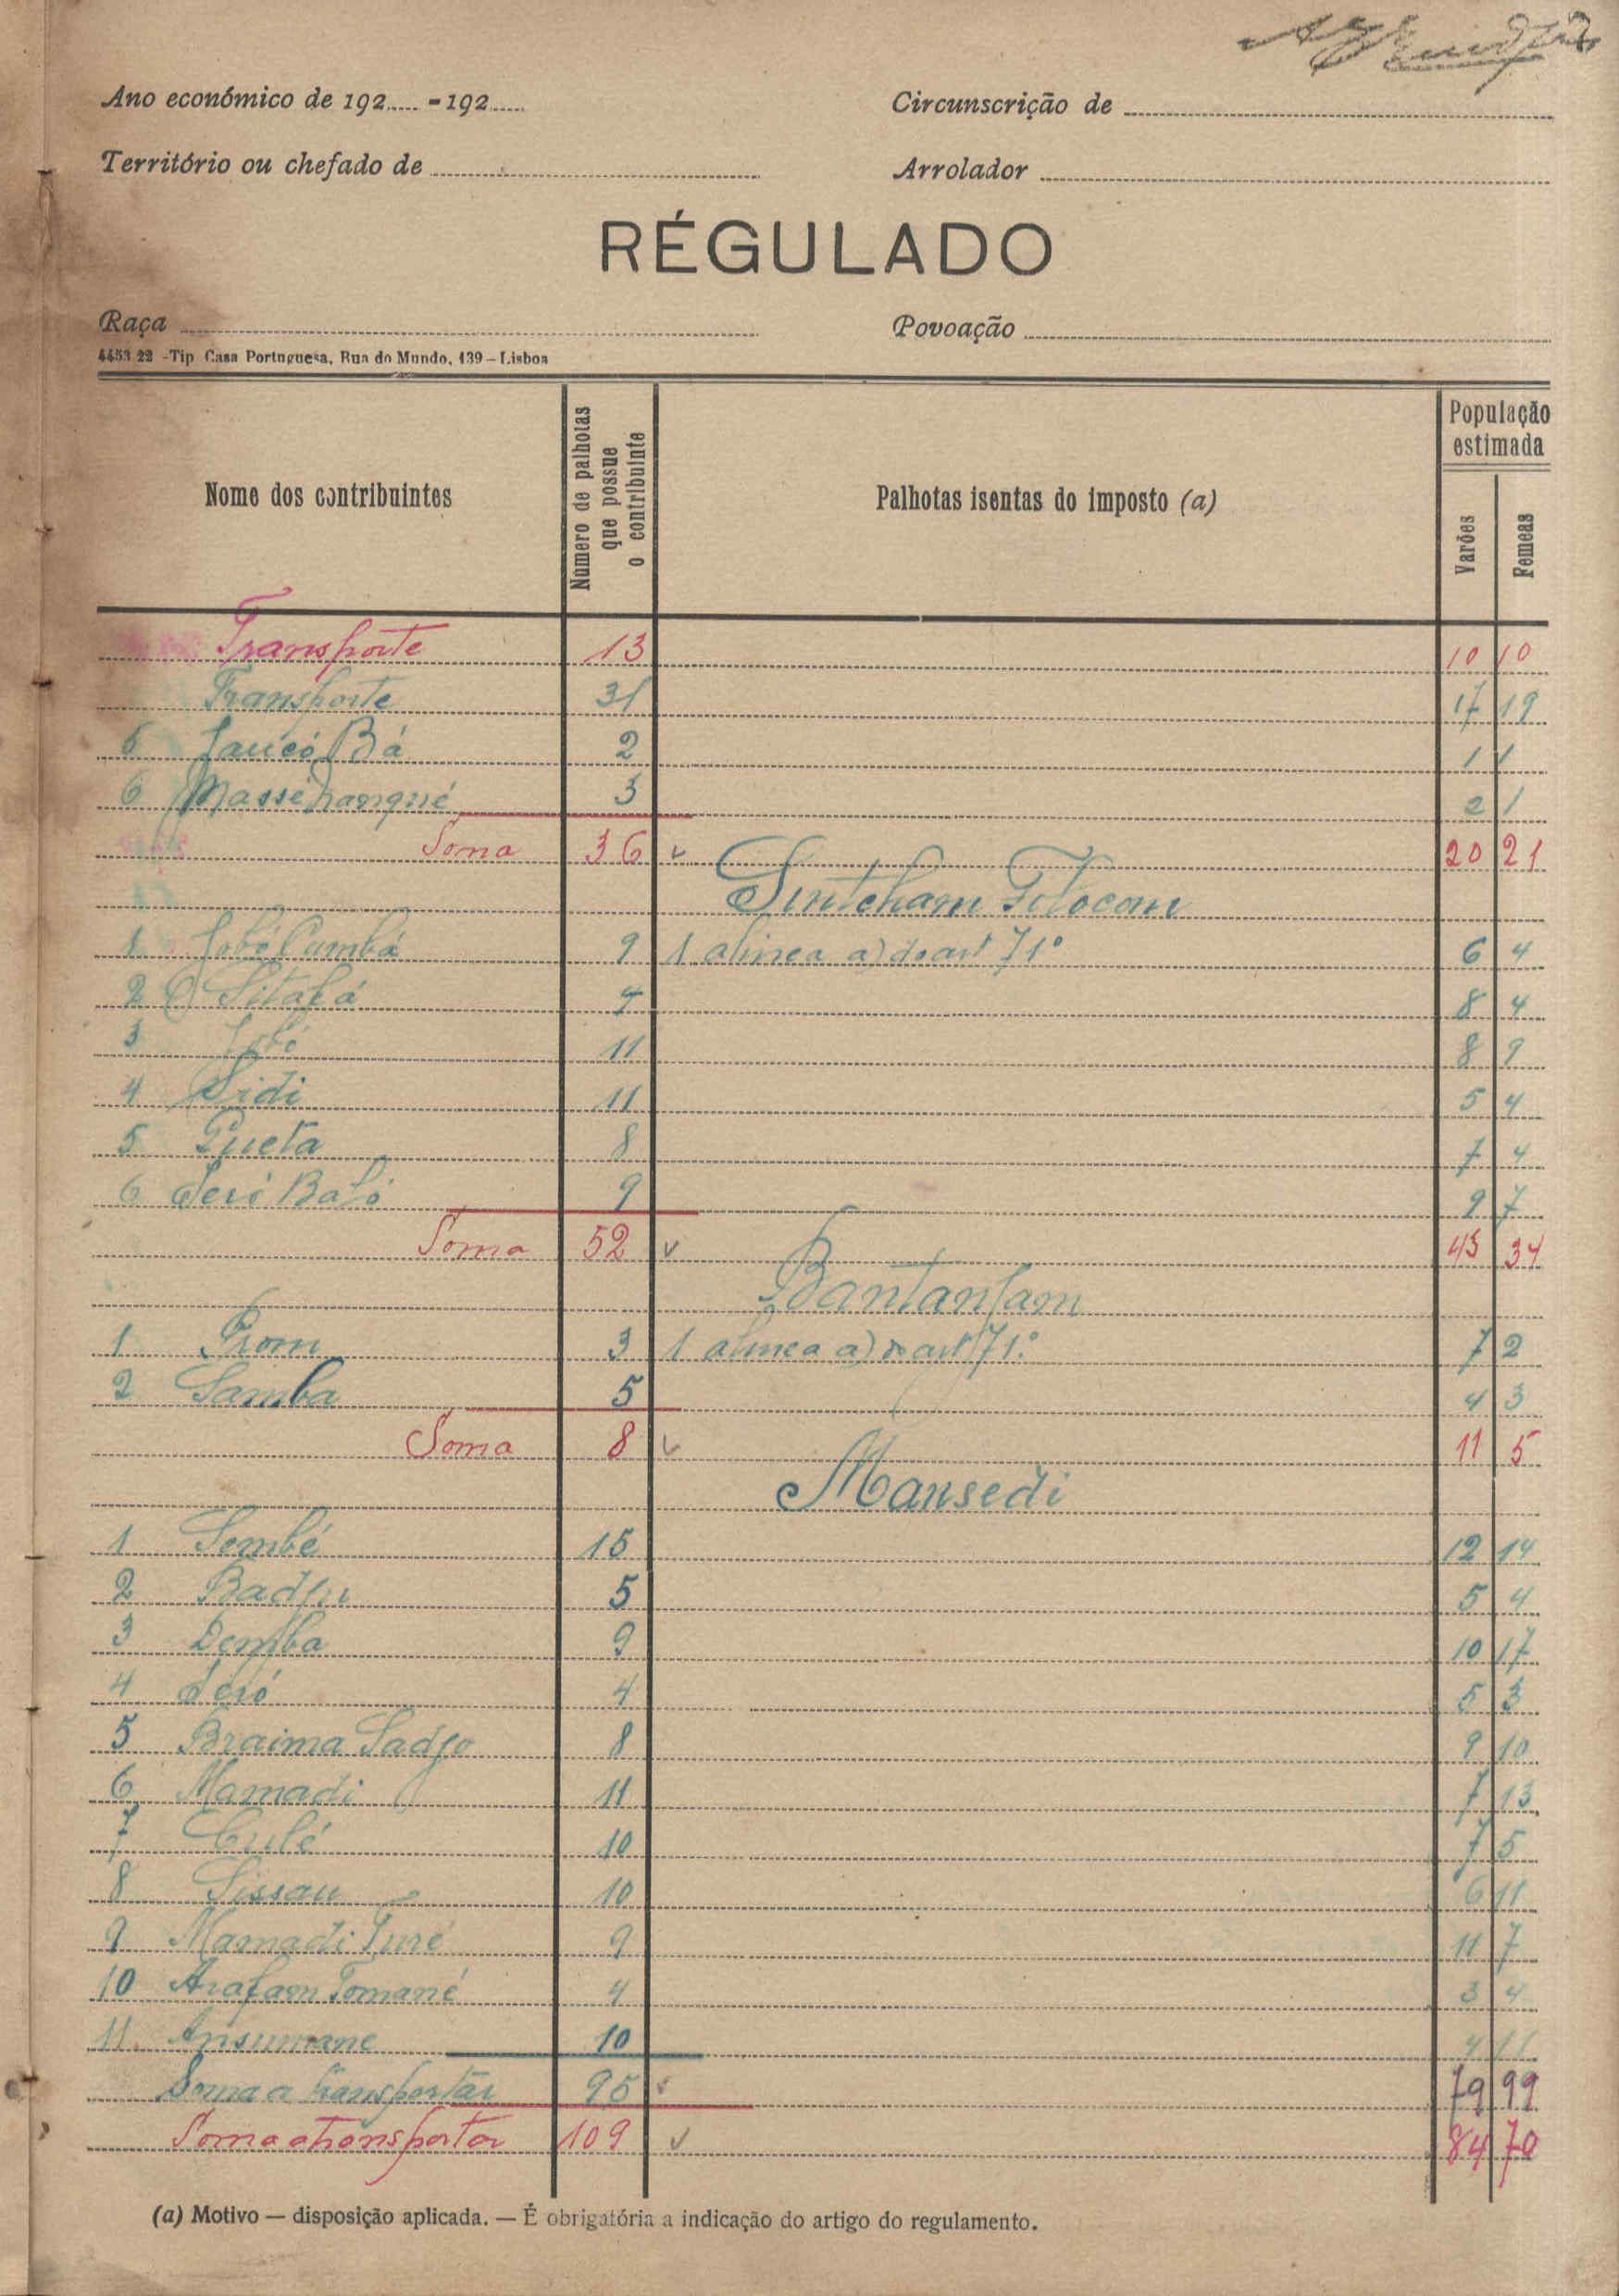 Ano económico de 192..... -192.....
Circunscrição de
Território ou chefado de
Arrolador
RÉGULADO
Raça
Povoação
4453 22 -Tip Casa Portuguesa, Rua do Mundo, 139 – Lisboa
Nome dos contribuintes
Número de palhotas que possue o contribuinte
Palhotas isentas do imposto (a)
População estimada
Varões
Femeas
Transporte 13 10 10
Transporte 31 17 19
5 Bá 2 1 1
6 3 2 1
Soma 36 20 21
Sintcham
1 9 1 alinea a) do art 71º 6 4
2 7 8 4
3 11 8 9
4 Sidi 11 5 4
5 Gueta 8 7 4
6 9 9 7
Soma 52 43 34
Bantanjam
1 3 1 alinea a) do art 71º 7 2
2 Samba 5 4 3
Soma 8 11 5
Mansedi
1 Sembé 15 12 14
2 Badju 5 5 4
3 Demba 9 10 17
4 4 5 3
5 Braima Sadjo 8 9 10
6 Mamadi 11 7 13
7 10 7 5
8 Sissau 10 6 11
9 Mamadi Turé 9 11 7
10 Arafam Tomané 4 3 4
11 Ansumane 10 4 11
Soma a transportar 95 79 99
Soma a transportar 109 84 70
(a) Motivo — disposição aplicada. — É obrigatória a indicação do artigo do regulamento.